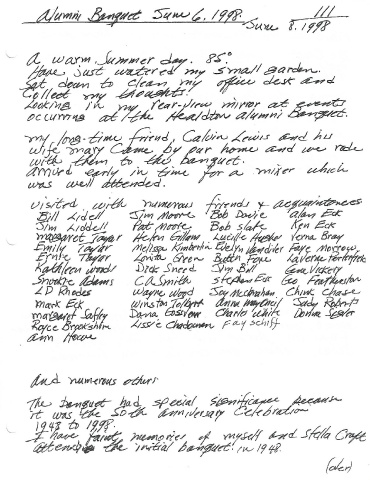 Alumni Banquet June 6, 1998. 111
June 8, 1998
A warm summer day. 85°
Have just watered my small garden.
Sat down to clean my office desk and
Collect my thoughts.
Looking in my rear-view mirror at events
occuring at the Healdton alumni Banquet.
my long-time friend, Calvin Lewis and his
wife Mary Came by our home and we rode
with them to the banquet.
arrived early in time for a mixer which
was well attended.
visited with numerous friends & acquaintences
Bill Lidell Jim Moore Bob Davie Alan Eck
Jim Liddell Pat Moore Bob Slate Ken Eck
margaret Taylor Helen Lucille Verna Bray
Emily Taylor Melissa Kimberlin Evelyn Faye Morrow
Ernie Taylor Lorita Green Laverne
Kathleen Woods Dick Sneed Jim Bill Gene Vickery
Snookie Adams CA Smith Stephen Eck Geo Featherston
LD Rhodes Wayne Word Joy McClanahan Chink Chase
Mark Eck Winston Tolbert Anna Judy Roberts
margaret Dana Charles White Donna
Royce Brookshire Lissie Fay Schiff
Ann Howe
And numerous others
The banquet had special significance because
it was the 50th anniversary Celebration
1948 to 1998.
I have faint memories of myself and Stella Craft
attending the initial banquet in 1948.
(over)